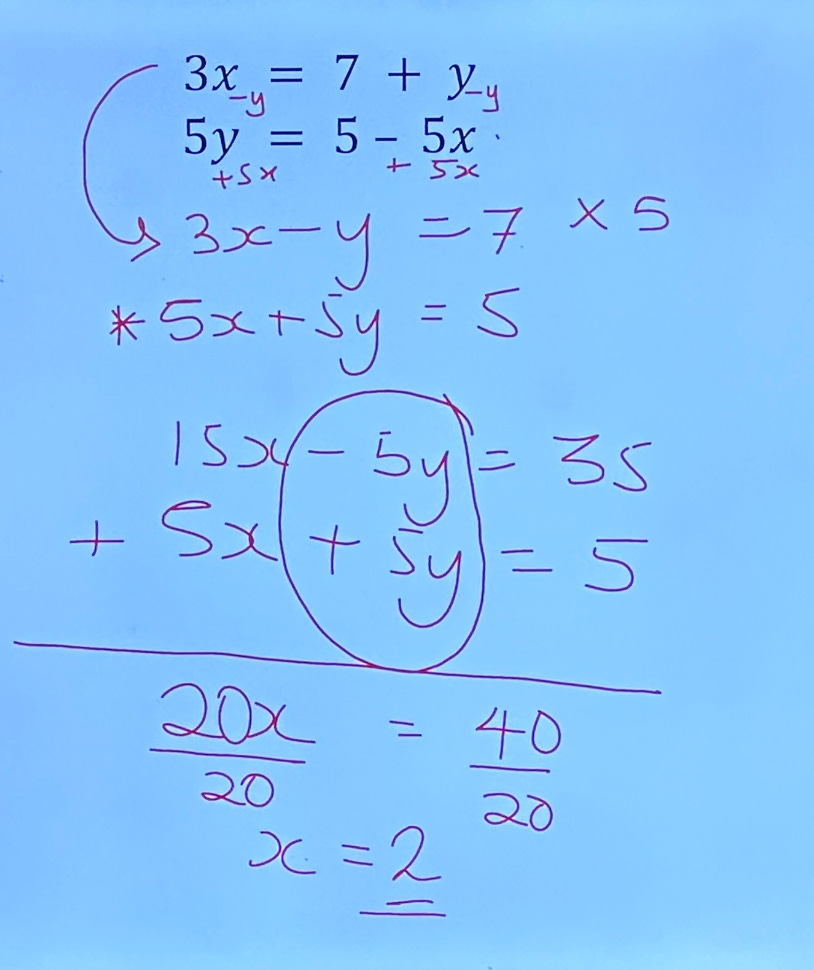 3x = 7 + y
-y -y
5y = 5 - 5x
+5x + 5x
3x - y = 7 × 5
* 5x + 5y = 5
15x - 5y = 35
+ 5x + 5y = 5
20x = 40
20 20
x = 2